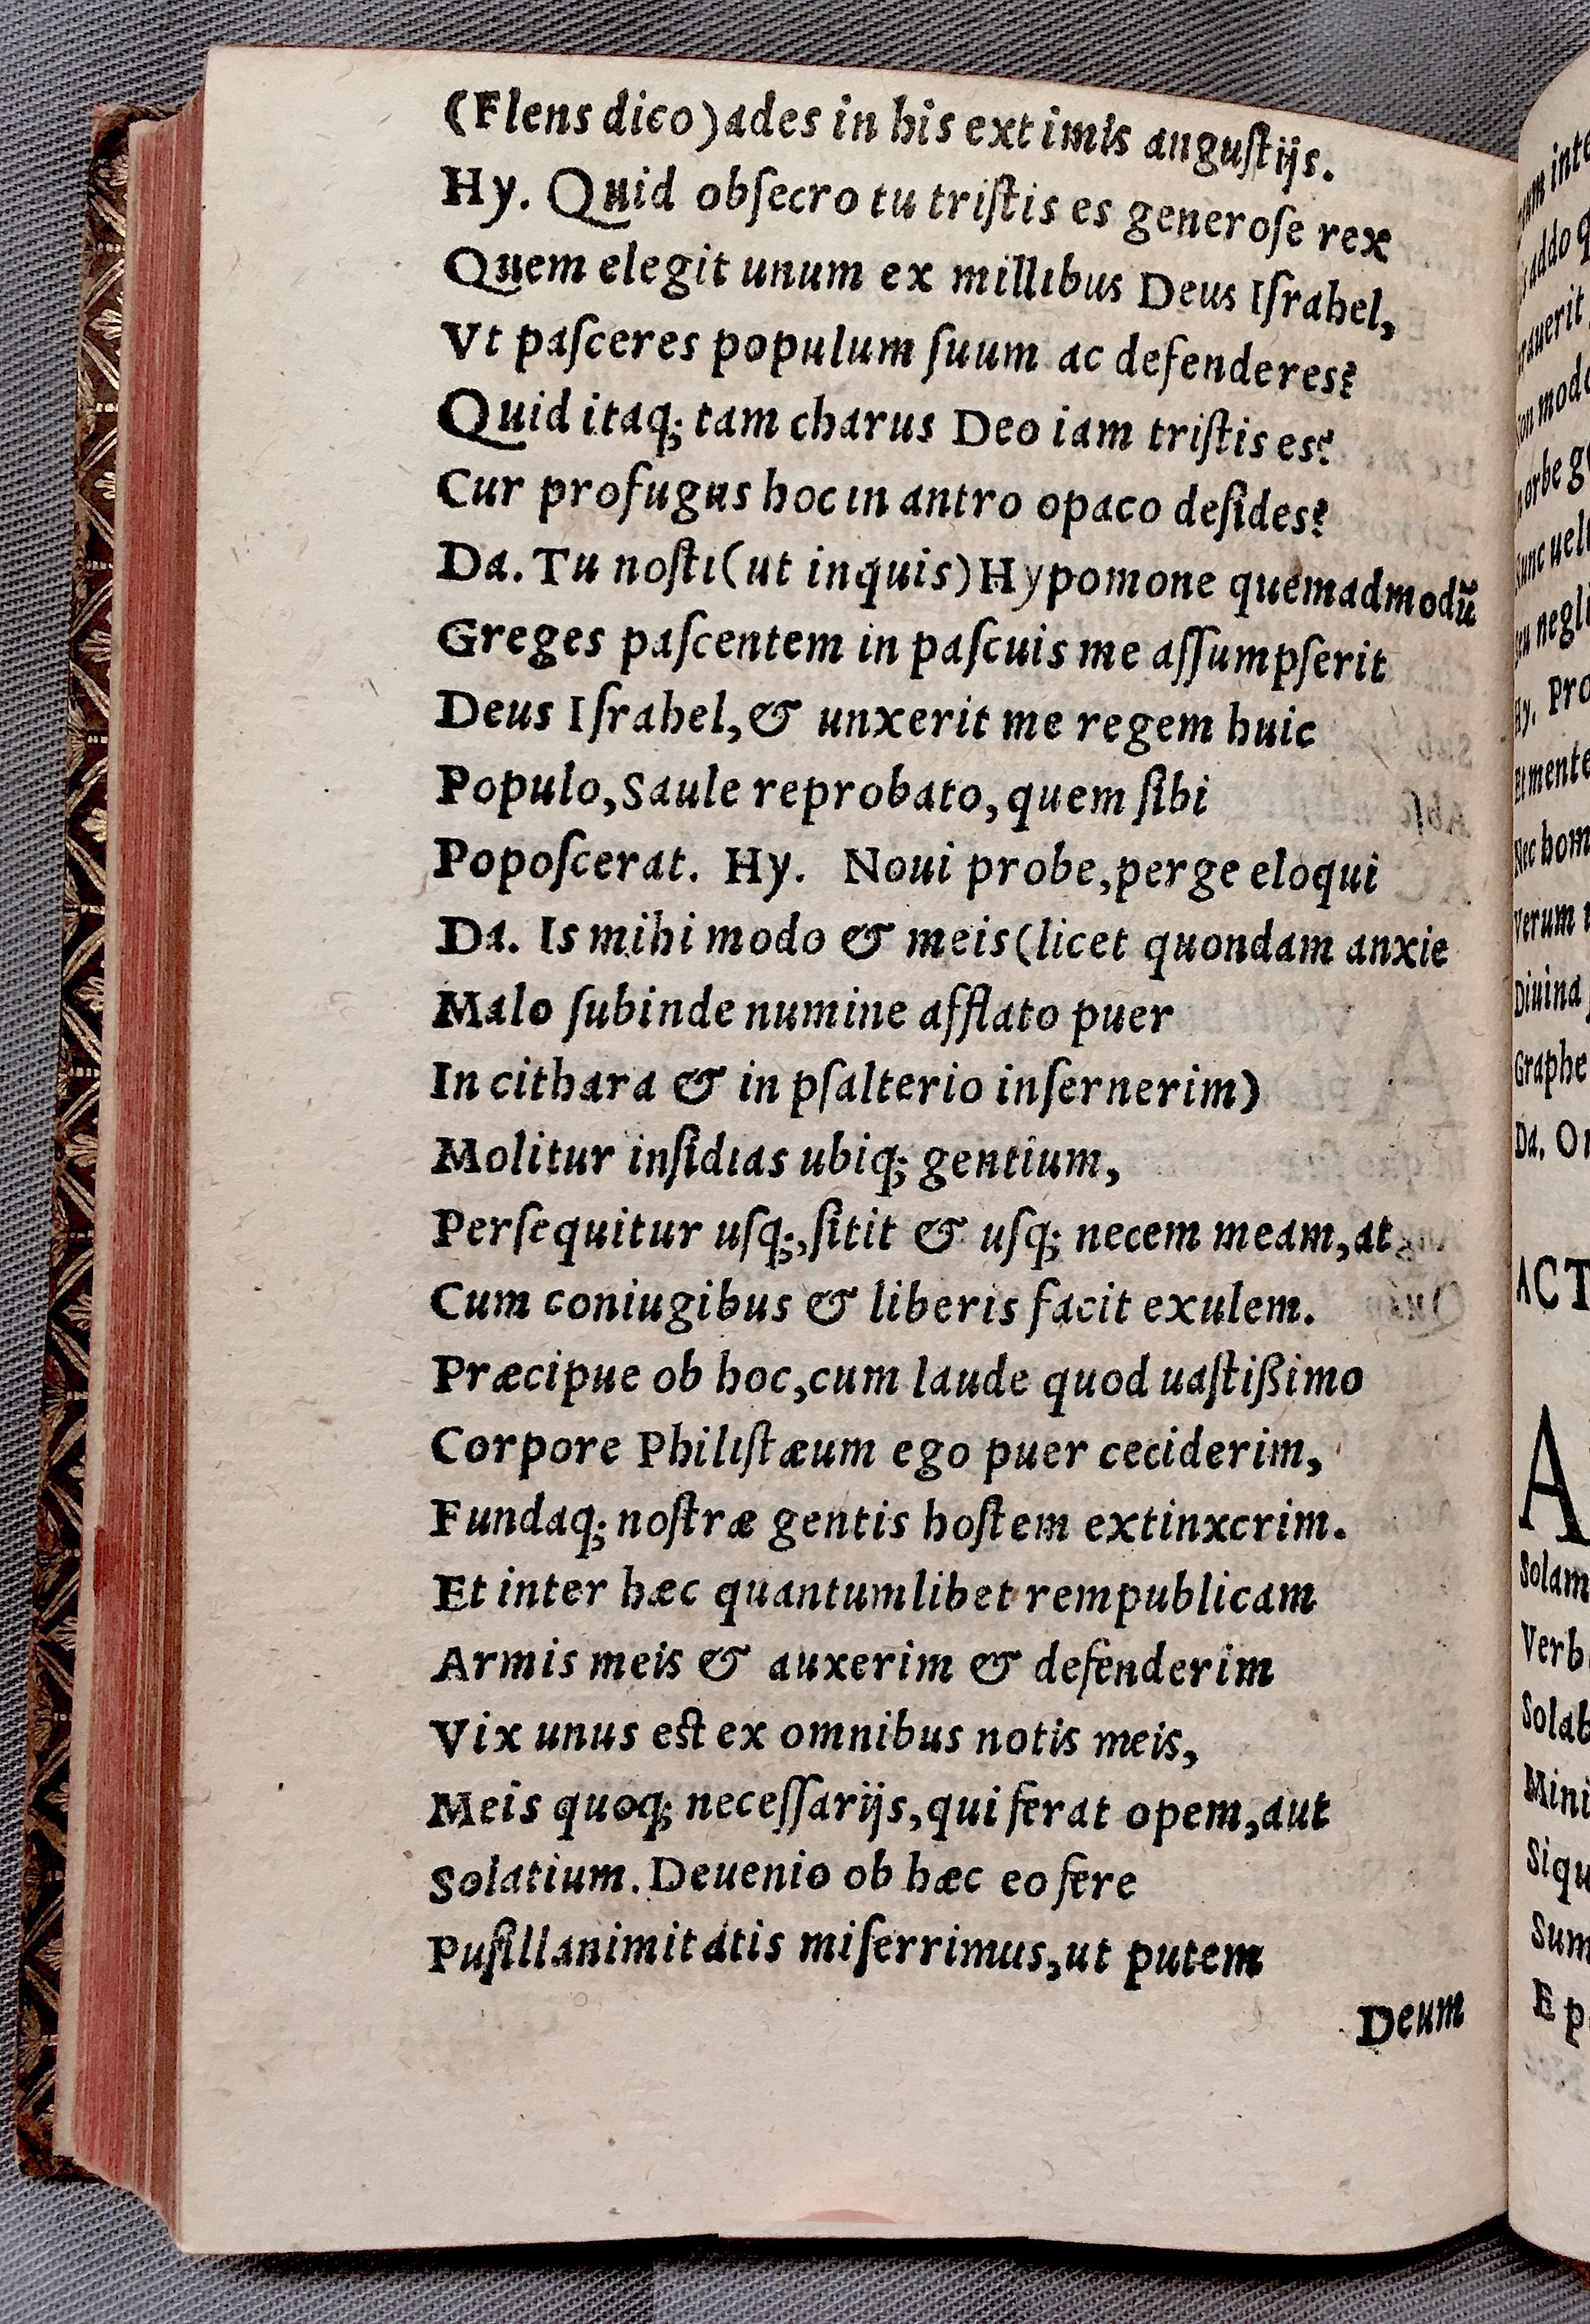 (Flens dico)ades in his extimis angustijs.
Hy. Quid obsecro tu tristis es generose rex
Quem elegit unum ex millibus Deus Israhel,
Vt pasceres populum suum ac defenderes?
Quid itaq; tam charus Deo iam tristis es?
Cur profugus hoc in antro opaco desides?
Da. Tu nosti(ut inquis)Hypomone quemadmodũ
Greges pascentem in pascuis me assumpserit
Deus Israhel,& unxerit me regem huic
Populo,Saule reprobato,quem sibi
Poposcerat. Hy. Noui probe,perge eloqui
Da. Is mihi modo & meis(licet quondam anxie
Malo subinde numine afflato puer
In cithara & in psalterio insernerim)
Molitur insidias ubiq; gentium,
Persequitur usq;,sitit & usq; necem meam,at
Cum coniugibus & liberis facit exulem.
Præcipue ob hoc,cum laude quod uastißimo
Corpore Philistæum ego puer ceciderim,
Fundaq; nostræ gentis hostem extinxcrim.
Et inter hæc quantumlibet rempublicam
Armis meis & auxerim & defenderim
Vix unus est ex omnibus notis meis,
Meis quoq; necessarijs,qui ferat opem,aut
Solatium. Deuenio ob hæc eo fere
Pusillanimitatis miserrimus,ut putem
Deum
inte
addo q
rauerit
modo
orbe g
negli
Hy. Pro
Et mente
Nec hom
Verum
Diuina
Graphe
Da. O
ACT
A
Solam
Verb
Solab
Mini
Siqu
Sum
E p